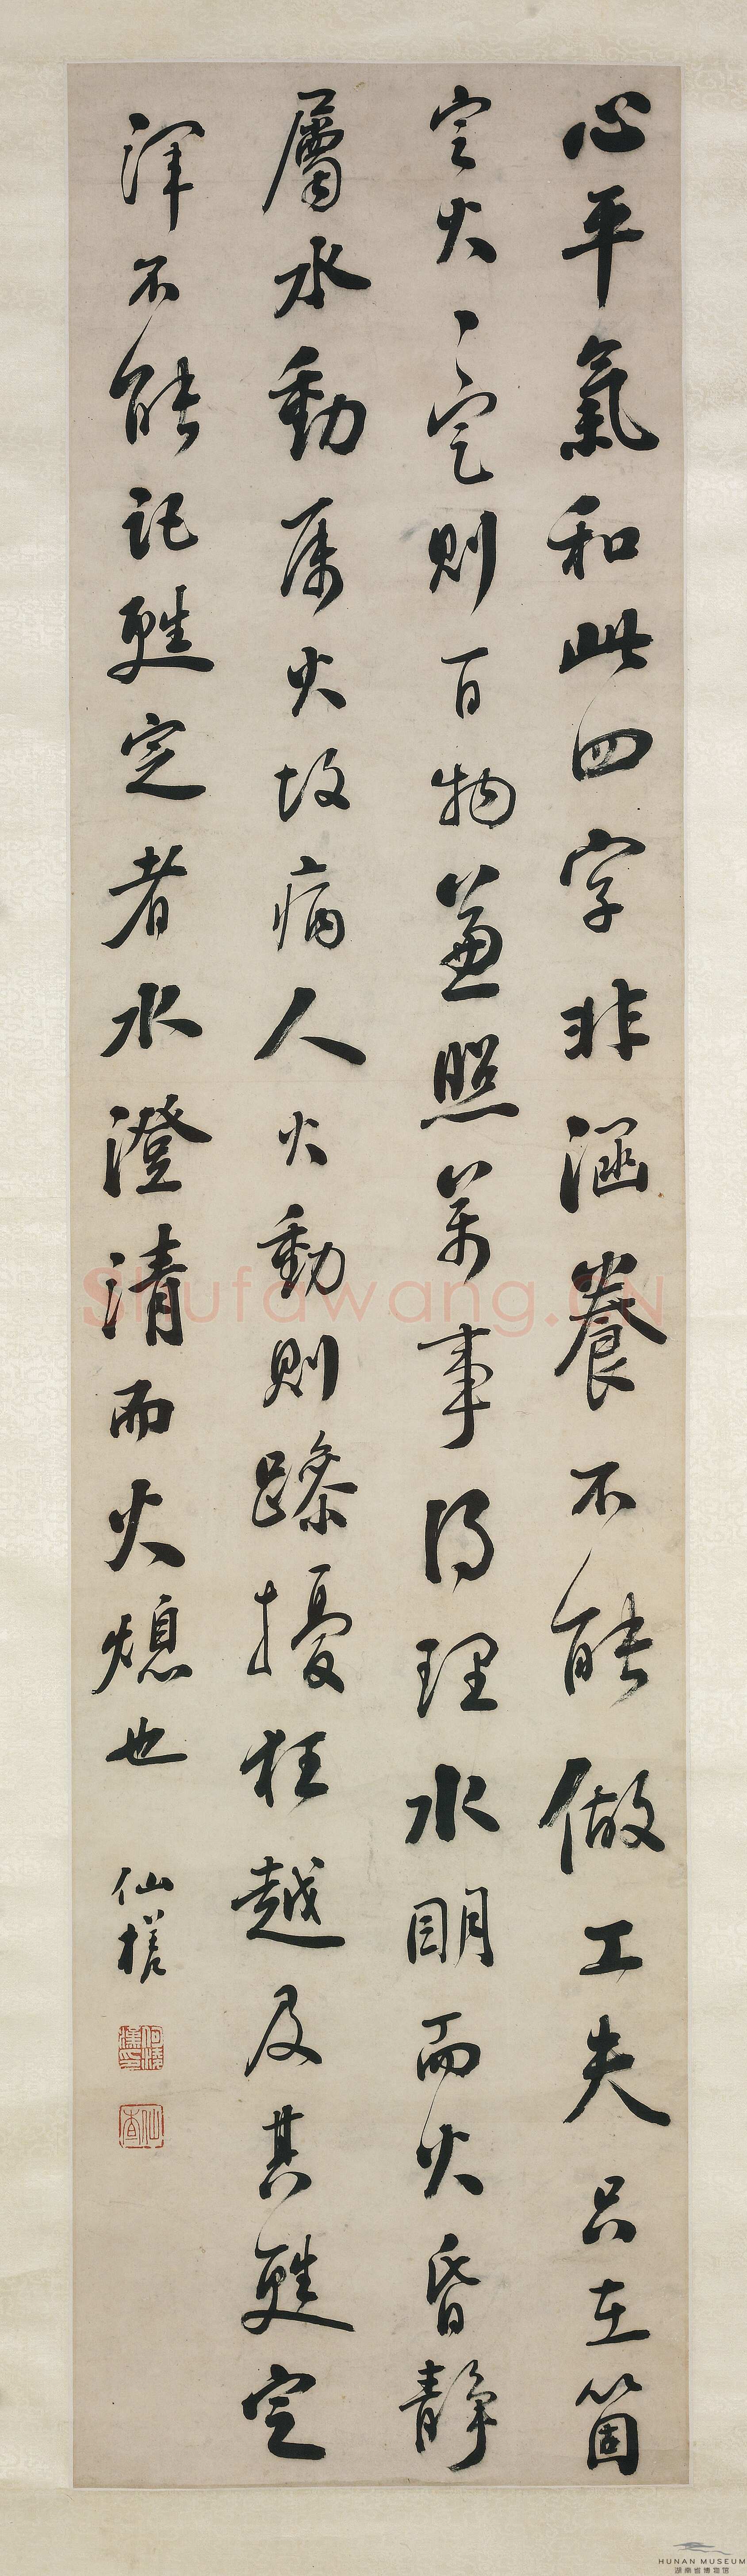 心平氣和此四字非涵養不能做工夫只在箇
定火火定則百物兼照萬事得理水明而火昏靜
屬水動屬火故病人火動則躁擾狂越及其甦定
渾不能記甦定者水澄清而火熄也
仙槎
仙查
Shufawang.CN
HUNAN MUSEUM
湖南省博物館